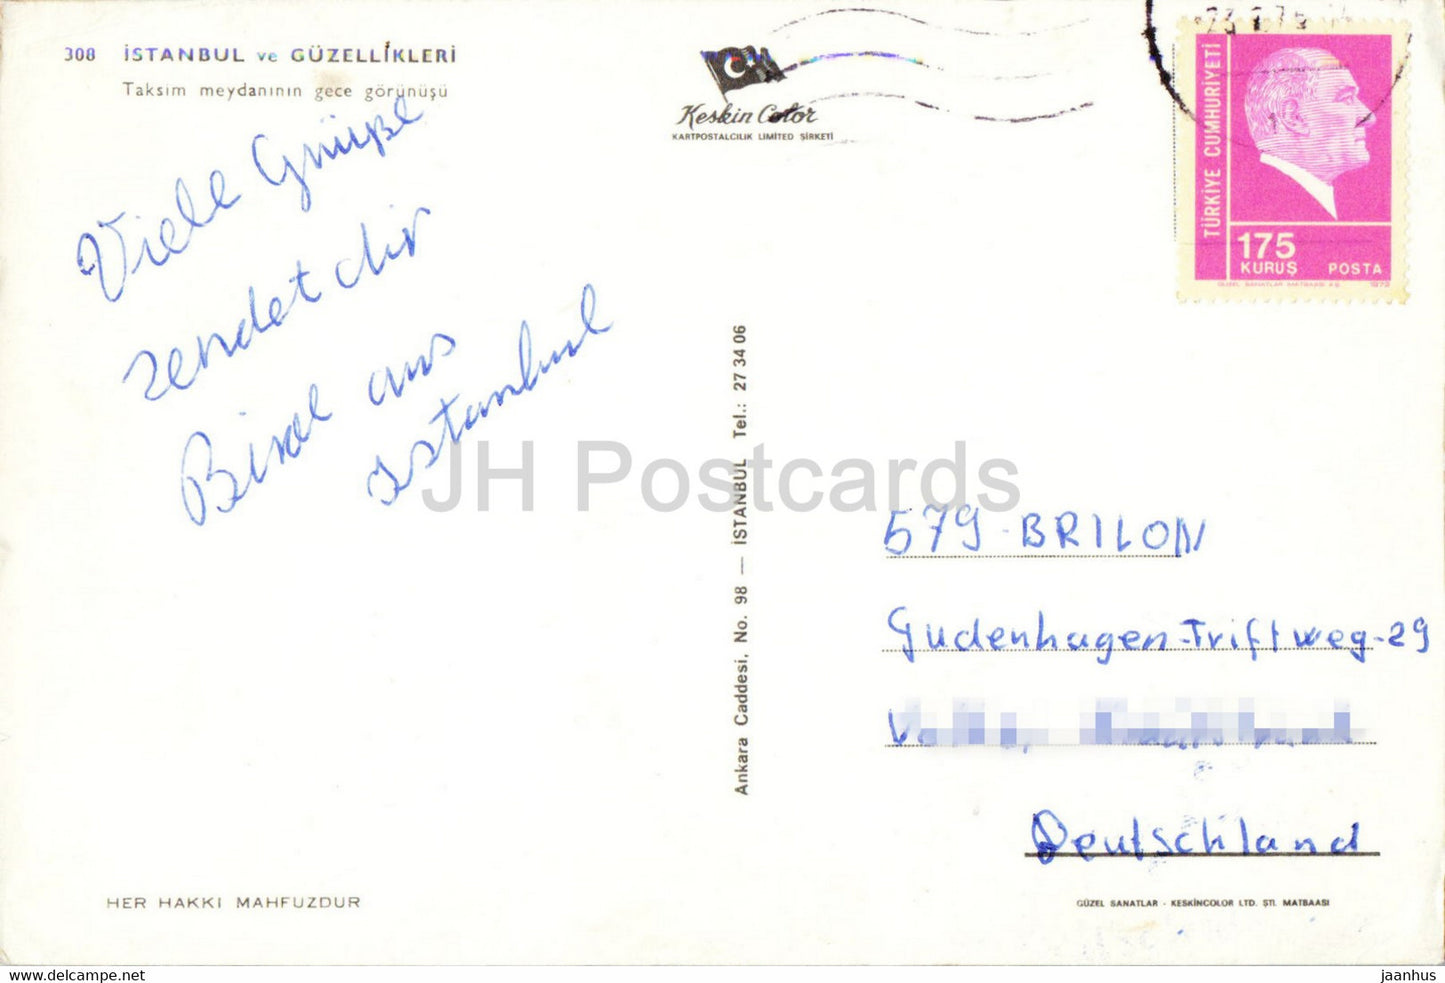 308 İSTANBUL ve GÜZELLİKLERİ
Taksim meydanının gece görünüşü
Viele Grüße
sendet dir
Birol aus
Istanbul
HER HAKKI MAHFUZDUR
Keskin Color
KARTPOSTALCILIK LIMITED ŞİRKETİ
Ankara Caddesi, No. 98 — İSTANBUL Tel.: 27 34 06
TÜRKİYE CUMHURİYETİ
175
KURUŞ POSTA
GÜZEL SANATLAR MATBAASI A.Ş. 1972
579-BRILON
Gudenhagen-Triftweg-29
Deutschland
GÜZEL SANATLAR - KESKİNCOLOR LTD. ŞTİ. MATBAASI
JH Postcards
https://www.delcampe.net
jaanhus